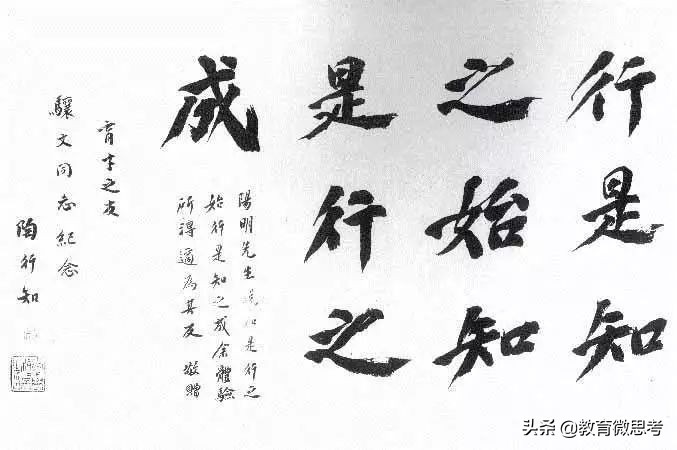 行是知
之始知
是行之
成
陽明先生說知是行之
始行是知之成余體驗
所得適為其反 敬贈
育才之友
驤文同志紀念
陶行知
头条 @教育微思考